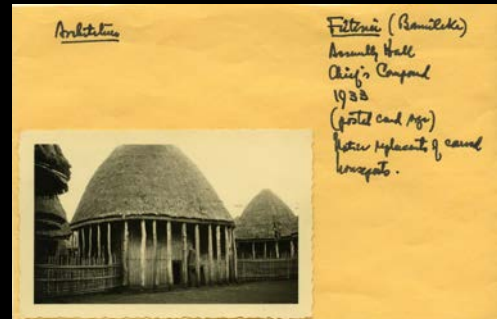 Architecture
(Bamileke)
Assembly Hall
Chief's Compound
1933
(postal card Age)
Notice replacements of carved
houseposts.